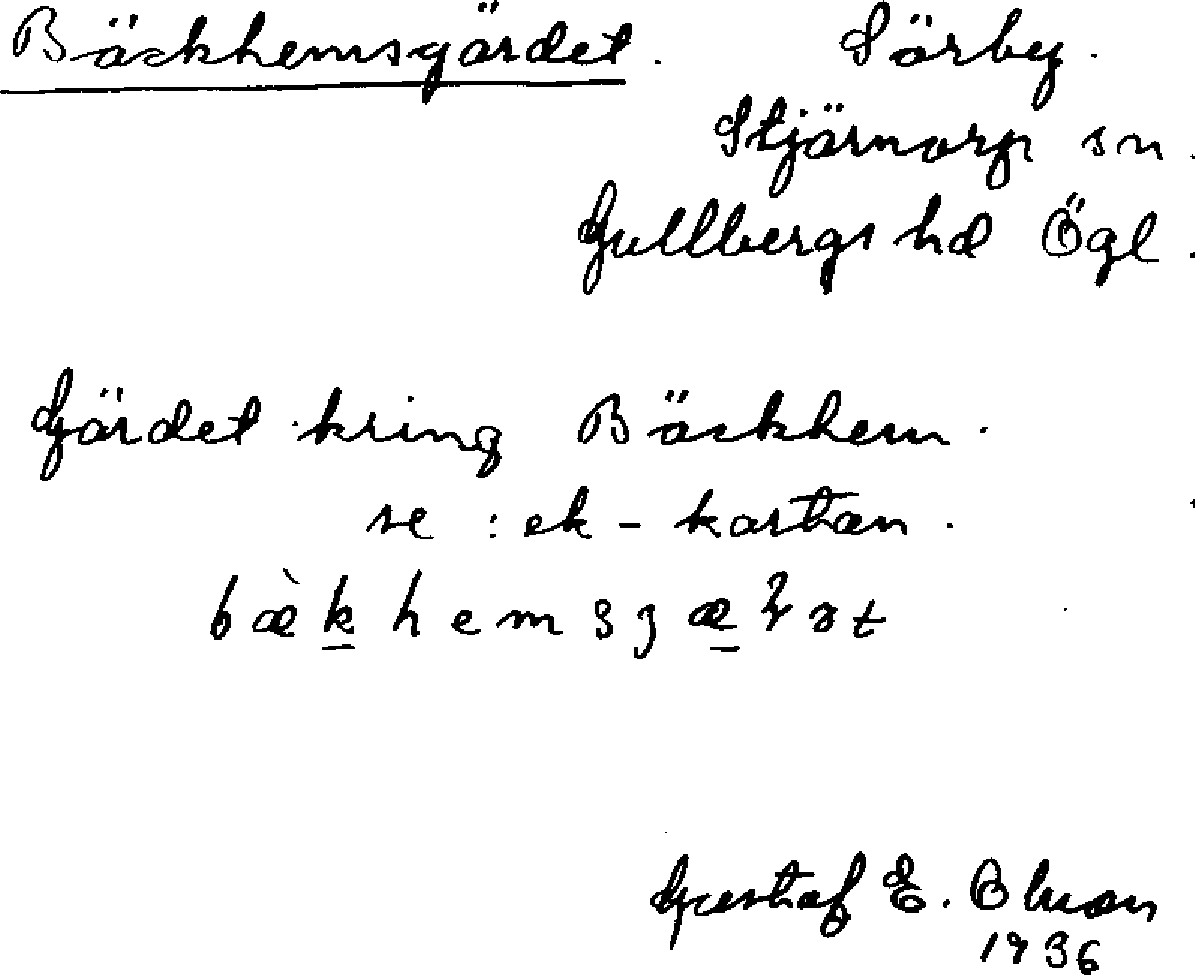 Bäckhemsgärdet. Sörby.
Stjärnorp sn.
Gullbergs hd Ögl.
Gärdet kring Bäckhem.
se : ek - kartan.
Gustaf E. Olsson
1936